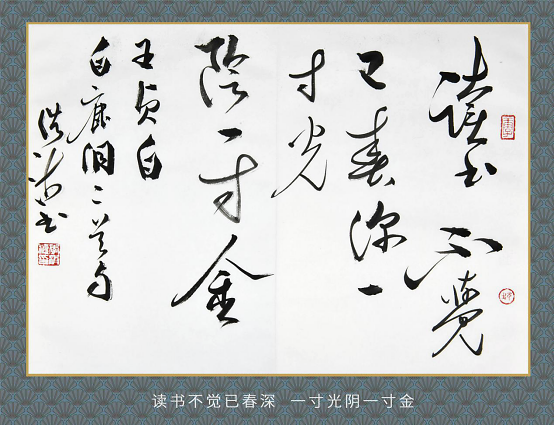 讀书不覺
已春深一
寸光
陰一寸金
王贞白
白鹿洞二首句
书
读书不觉已春深 一寸光阴一寸金